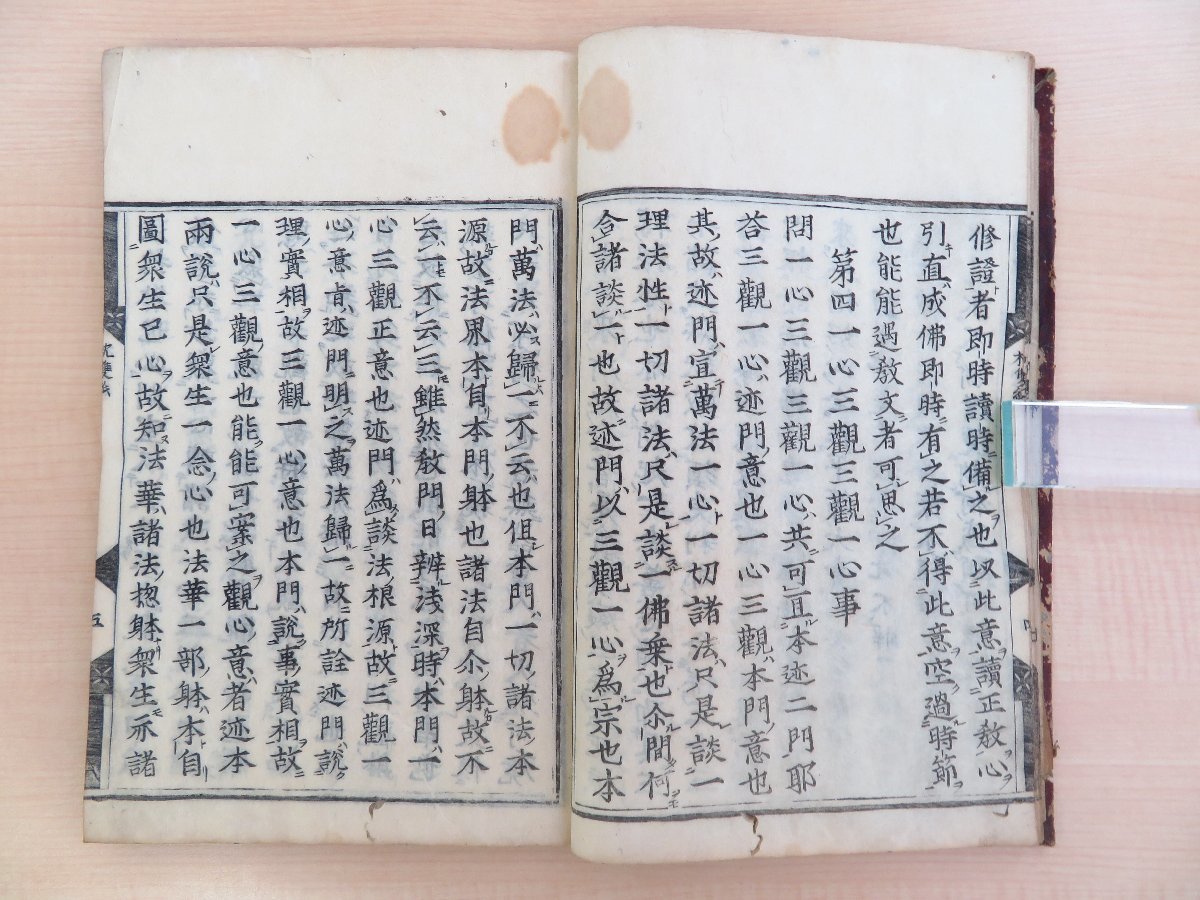 修證者即時讀時備之也以此意讀正教心
引直成佛即時有之若不得此意空過時節
也能能遇教文者可思之
第四一心三觀三觀一心事
問一心三觀三觀一心共可亘本迹二門耶
荅三觀一心迹門意也一心三觀本門意也
其故迹門宣萬法一心一切諸法只是談一
理法性一切諸法只是談一佛乗也尒間何
合諸談一也故迹門以三觀一心為宗也本
門萬法必歸一不云也但本門一切諸法本
源故法界本自本門躰也諸法自尒躰故不
云一不云三雖然教門日辨浅深時本門一
心三觀正意也迹門為談法根源故三觀一
心意肻迹門明之萬法歸一故所詮迹門說
理實相故三觀一心意也本門說事實相故
一心三觀意也能能可案之觀心意者迹本
兩說只是衆生一念心也法華一部躰本自
圖衆生已心故知法華諸法惣躰衆生示諸
五